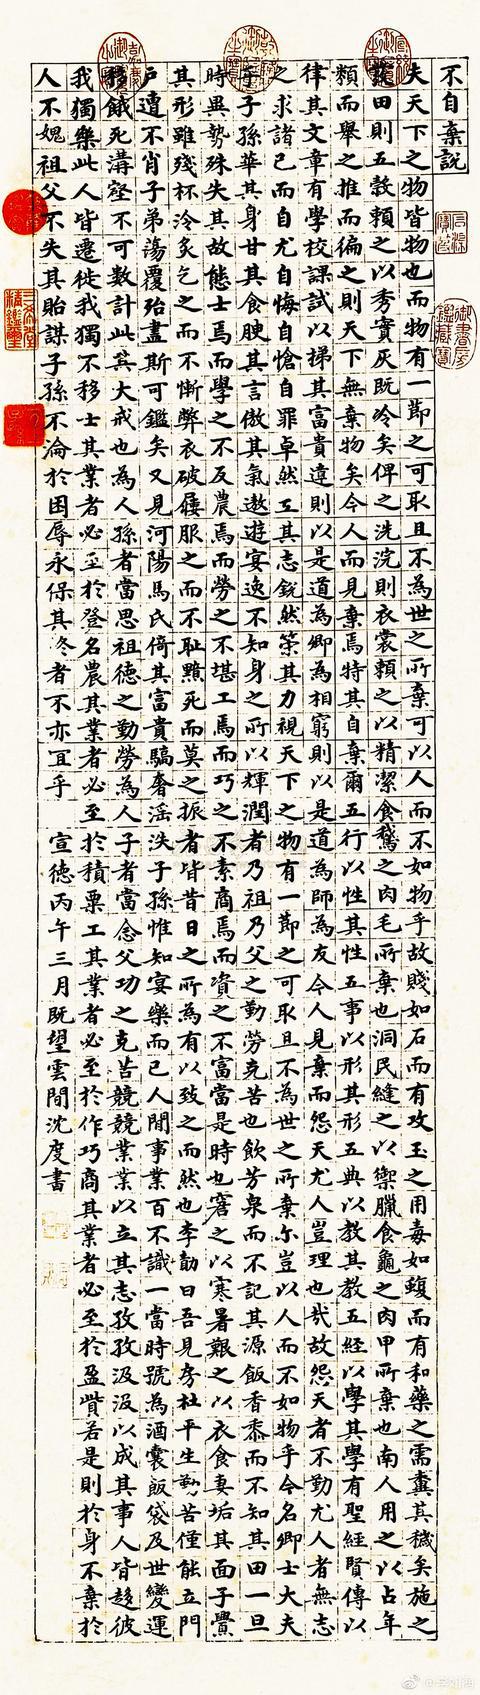 不自棄說
夫天下之物皆物也而物有一節之可取且不為世之所棄可以人而不如物乎故賤如石而有攻玉之用毒如蝮而有和藥之需糞其穢矣施之
田則五穀賴之以秀實灰既冷矣俾之洗浣則衣裳賴之以精潔食鵞之肉毛所棄也洞民縫之以禦臘食龜之肉甲所棄也南人用之以占年
類而舉之推而徧之則天下無棄物矣今人而見棄焉特其自棄爾五行以性其性五事以形其形五典以教其教五經以學其學有聖經賢傳以
律其文章有學校課試以梯其富貴達則以是道為卿為相窮則以是道為師為友今人見棄而怨天尤人豈理也哉故怨天者不勤尤人者無志
之求諸己而自尤自悔自愴自罪卓然立其志銳然策其力視天下之物有一節之可取且不為世之所棄尓豈以人而不如物乎今名卿士大夫
子孫華其身甘其食腴其言傲其氣遨遊宴逸不知身之所以輝潤者乃祖乃父之勤勞克苦也飲芳泉而不記其源飯香黍而不知其田一旦
時異勢殊失其故態士焉而學之不反農焉而勞之不堪工焉而巧之不素商焉而資之不富當是時也窘之以寒暑艱之以衣食妻垢其面子釁
其形雖殘杯冷炙乞之而不慚弊衣破屨服之而不恥黯死而莫之振者皆昔日之所為有以致之而然也李勣曰吾見房杜平生勤苦僅能立門
戶遭不肖子弟蕩覆殆盡斯可鑑矣又見河陽馬氏倚其富貴驕奢淫泆子孫惟知宴樂而已人間事業百不識一當時號為酒囊飯袋及世變運
移餓死溝壑不可數計此其大戒也為人孫者當思祖德之勤勞為人子者當念父功之克苦競競業業以立其志孜孜汲汲以成其事人皆趍彼
我獨樂此人皆遷徙我獨不移士其業者必至於登名農其業者必至於積粟工其業者必至於作巧商其業者必至於盈貲若是則於身不棄於
人不媿祖父不失其貽謀子孫不淪於困辱永保其冬者不亦宜乎 宣德丙午三月既望雲間沈度書